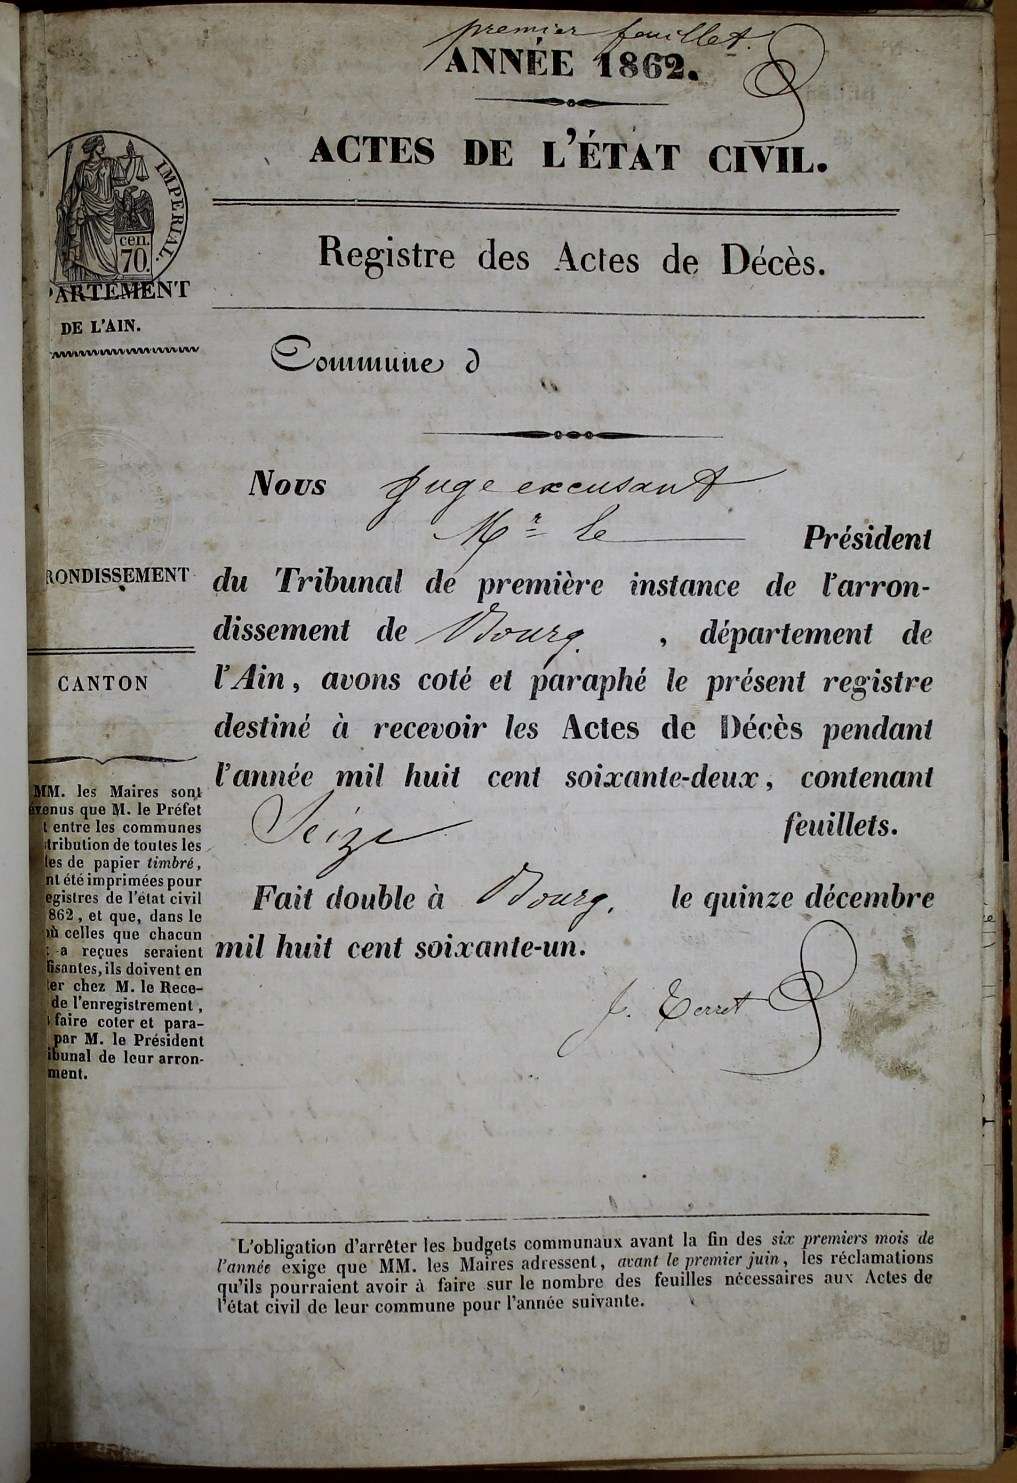 premier feuillet.
ANNÉE 1862.
ACTES DE L'ÉTAT CIVIL.
IMPÉRIAL.
cen.
70.
PARTEMENT
DE L'AIN.
Registre des Actes de Décès.
Commune d
Nous Juge excusant
Mr le Président
du Tribunal de première instance de l'arron-
dissement de Bourg, département de
l'Ain, avons coté et paraphé le présent registre
destiné à recevoir les Actes de Décès pendant
l'année mil huit cent soixante-deux, contenant
Seize feuillets.
Fait double à Bourg, le quinze décembre
mil huit cent soixante-un.
J. Terret
RONDISSEMENT
CANTON
MM. les Maires sont
évenus que M. le Préfet
t entre les communes
tribution de toutes les
les de papier timbré,
nt été imprimées pour
egistres de l'état civil
862, et que, dans le
où celles que chacun
a reçues seraient
fisantes, ils doivent en
ter chez M. le Rece-
de l'enregistrement,
faire coter et para-
par M. le Président
ibunal de leur arron-
ment.
L'obligation d'arrêter les budgets communaux avant la fin des six premiers mois de
l'année exige que MM. les Maires adressent, avant le premier juin, les réclamations
qu'ils pourraient avoir à faire sur le nombre des feuilles nécessaires aux Actes de
l'état civil de leur commune pour l'année suivante.